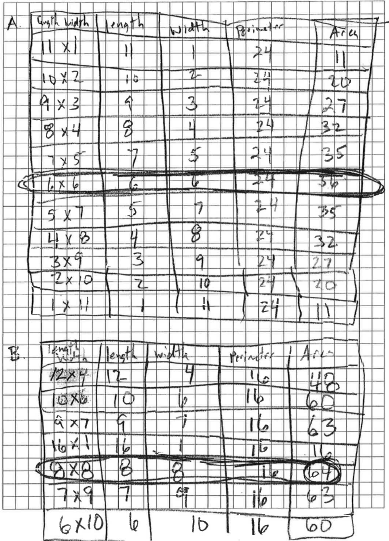 A. length width length width Perimeter Area
11 x 1 11 1 24 11
10 x 2 10 2 24 20
9 x 3 9 3 24 27
8 x 4 8 4 24 32
7 x 5 7 5 24 35
6 x 6 6 6 24 36
5 x 7 5 7 24 35
4 x 8 4 8 24 32
3 x 9 3 9 24 27
2 x 10 2 10 24 20
1 x 11 1 11 24 11
B. length width length width Perimeter Area
12 x 4 12 4 16 48
10 x 6 10 6 16 60
9 x 7 9 16 63
16 x 1 16 1 16 16
8 x 8 8 8 16 64
7 x 9 7 9 16 63
6 x 10 6 10 16 60